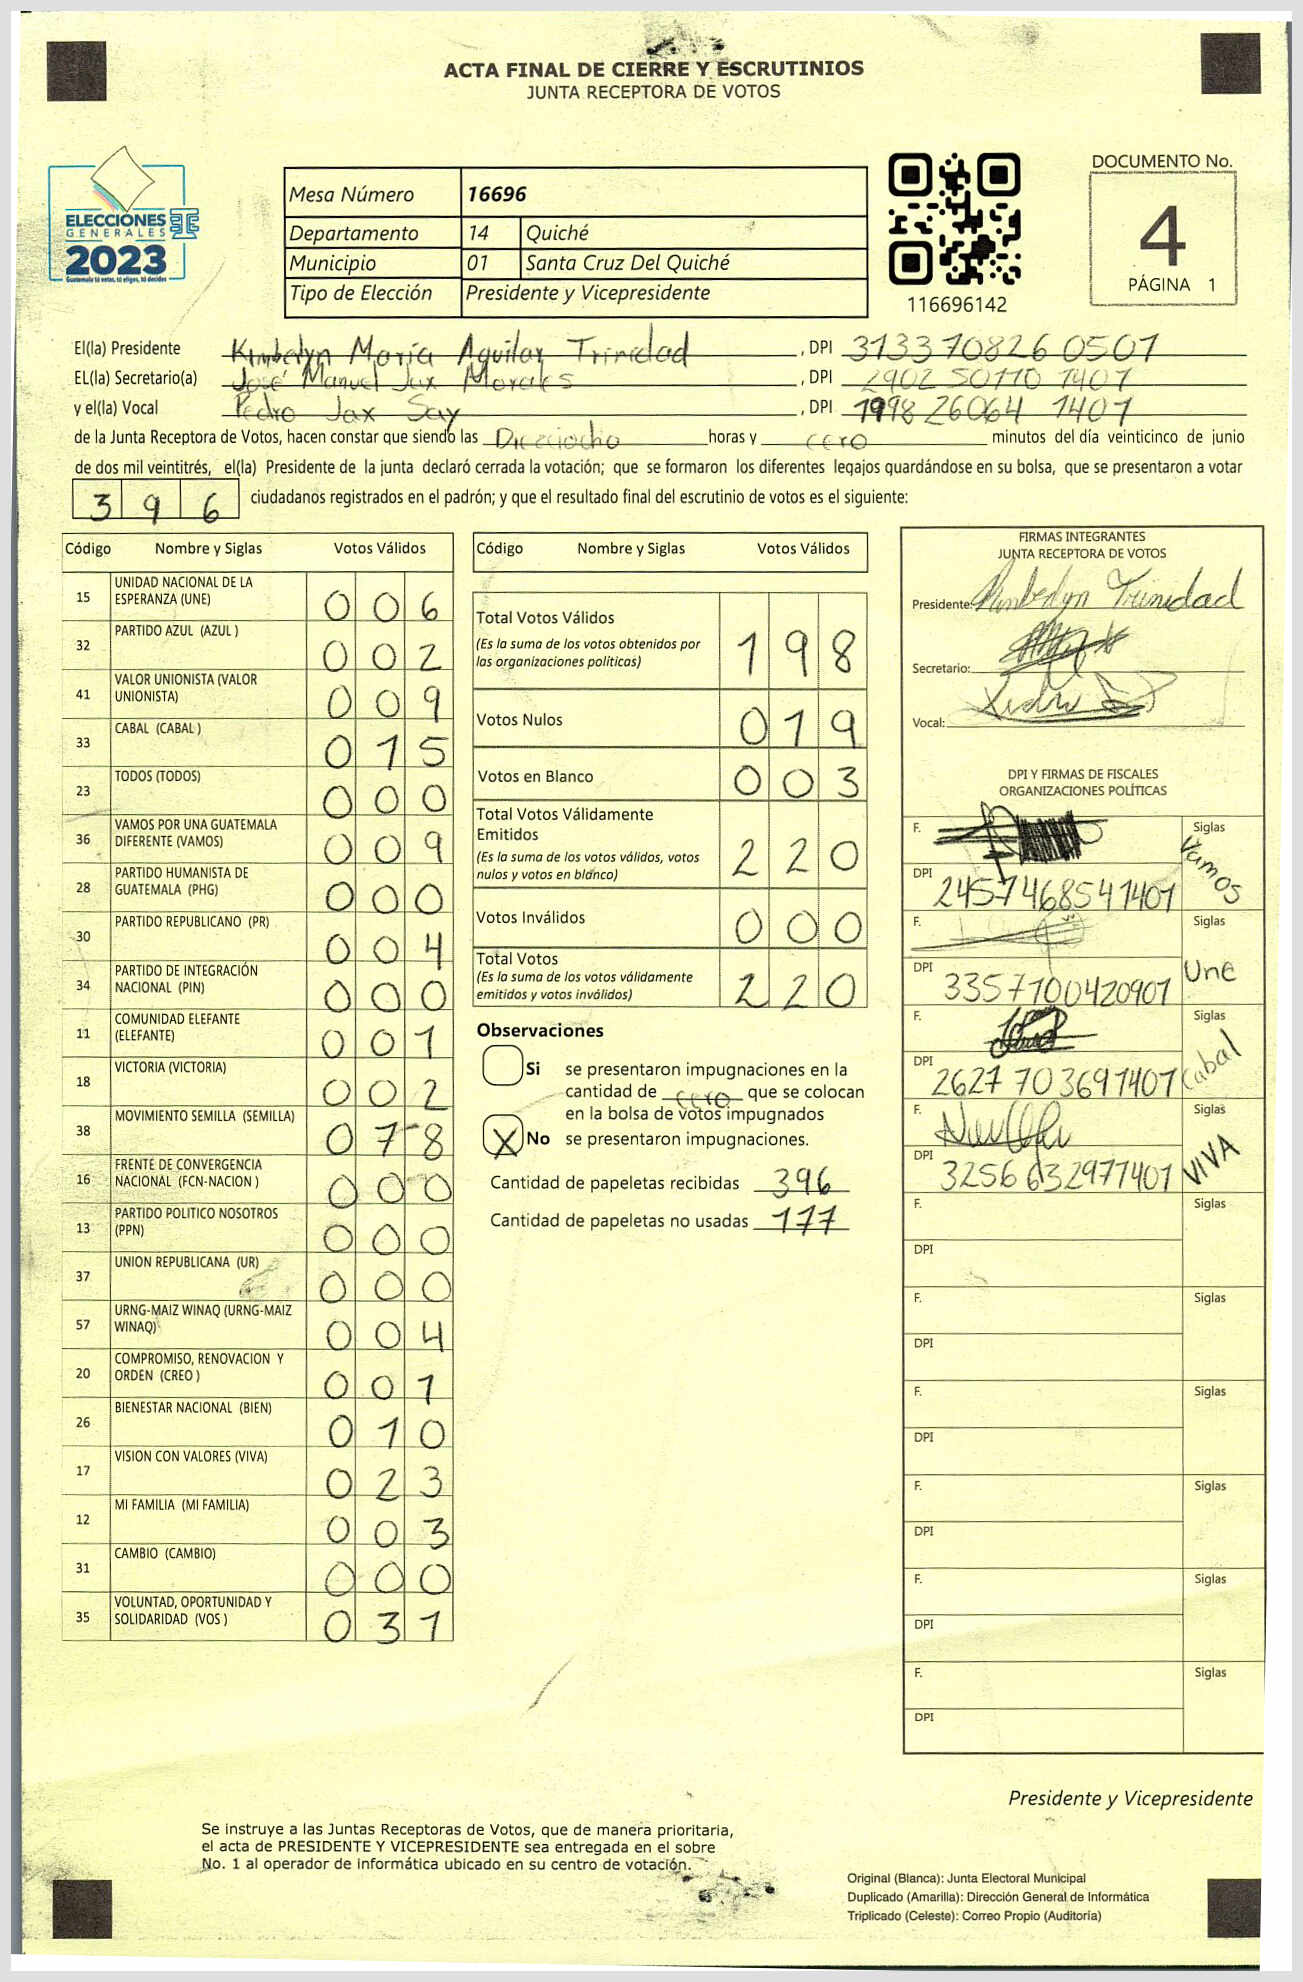 ACTA FINAL DE CIERRE Y ESCRUTINIOS
JUNTA RECEPTORA DE VOTOS
ELECCIONES
GENERALES
2023
Guatemala tú votas, tú eliges, tú decides
Mesa Número 16696
Departamento 14 Quiché
Municipio 01 Santa Cruz Del Quiché
Tipo de Elección Presidente y Vicepresidente
116696142
DOCUMENTO No.
4
PÁGINA 1
El(la) Presidente Kimberlyn María Aguilar Trinidad , DPI 313370826 0501
EL(la) Secretario(a) José Manuel Jax Morales , DPI 2902 50770 1401
y el(la) Vocal Pedro Jax Say , DPI 1998 26064 1401
de la Junta Receptora de Votos, hacen constar que siendo las Dieciocho horas y cero minutos del día veinticinco de junio
de dos mil veintitrés, el(la) Presidente de la junta declaró cerrada la votación; que se formaron los diferentes legajos quardándose en su bolsa, que se presentaron a votar
396 ciudadanos registrados en el padrón; y que el resultado final del escrutinio de votos es el siguiente:
Código Nombre y Siglas Votos Válidos
15 UNIDAD NACIONAL DE LA ESPERANZA (UNE) 006
32 PARTIDO AZUL (AZUL ) 002
41 VALOR UNIONISTA (VALOR UNIONISTA) 009
33 CABAL (CABAL ) 015
23 TODOS (TODOS) 000
36 VAMOS POR UNA GUATEMALA DIFERENTE (VAMOS) 009
28 PARTIDO HUMANISTA DE GUATEMALA (PHG) 000
30 PARTIDO REPUBLICANO (PR) 004
34 PARTIDO DE INTEGRACIÓN NACIONAL (PIN) 000
11 COMUNIDAD ELEFANTE (ELEFANTE) 001
18 VICTORIA (VICTORIA) 002
38 MOVIMIENTO SEMILLA (SEMILLA) 078
16 FRENTE DE CONVERGENCIA NACIONAL (FCN-NACION ) 000
13 PARTIDO POLITICO NOSOTROS (PPN) 000
37 UNION REPUBLICANA (UR) 000
57 URNG-MAIZ WINAQ (URNG-MAIZ WINAQ) 004
20 COMPROMISO, RENOVACION Y ORDEN (CREO ) 001
26 BIENESTAR NACIONAL (BIEN) 010
17 VISION CON VALORES (VIVA) 023
12 MI FAMILIA (MI FAMILIA) 003
31 CAMBIO (CAMBIO) 000
35 VOLUNTAD, OPORTUNIDAD Y SOLIDARIDAD (VOS ) 031
Código Nombre y Siglas Votos Válidos
Total Votos Válidos 198
(Es la suma de los votos obtenidos por
las organizaciones políticas)
Votos Nulos 019
Votos en Blanco 003
Total Votos Válidamente
Emitidos 220
(Es la suma de los votos válidos, votos
nulos y votos en blanco)
Votos Inválidos 000
Total Votos 220
(Es la suma de los votos válidamente
emitidos y votos inválidos)
Observaciones
Si se presentaron impugnaciones en la
cantidad de cero que se colocan
en la bolsa de votos impugnados
X No se presentaron impugnaciones.
Cantidad de papeletas recibidas 396
Cantidad de papeletas no usadas 177
FIRMAS INTEGRANTES
JUNTA RECEPTORA DE VOTOS
Presidente: Kimberlyn Trinidad
Secretario:
Vocal: Pedro
DPI Y FIRMAS DE FISCALES
ORGANIZACIONES POLÍTICAS
F. Siglas Vamos
DPI 2457468541401
F. Siglas Une
DPI 3357700420901
F. Siglas Cabal
DPI 2627 703691401
F. Siglas VIVA
DPI 3256632971401
F. Siglas
DPI
F. Siglas
DPI
F. Siglas
DPI
F. Siglas
DPI
F. Siglas
DPI
F. Siglas
DPI
Presidente y Vicepresidente
Se instruye a las Juntas Receptoras de Votos, que de manera prioritaria,
el acta de PRESIDENTE Y VICEPRESIDENTE sea entregada en el sobre
No. 1 al operador de informática ubicado en su centro de votación.
Original (Blanca): Junta Electoral Municipal
Duplicado (Amarilla): Dirección General de Informática
Triplicado (Celeste): Correo Propio (Auditoría)